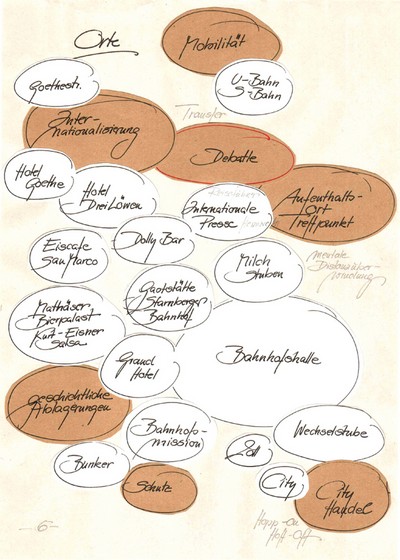 Orte
Mobilität
Goethestr.
U-Bahn
S-Bahn
Inter-
nationalisierung
Transfer
Debatte
Hotel
Goethe
Hotel
Drei Löwen
Internationale
Presse
Aufenthalts-
Ort
Treffpunkt
Eiscafe
San Marco
Dolly Bar
Milch
Stuben
mentale
Gaststätte
Starnberger
Bahnhof
Mathäser
Bierpalast
Kurt-Eisner
Salsa
Grand
Hotel
Bahnhofshalle
Geschichtliche
Ablagerungen
Bahnhofs-
mission
Zoll
Wechselstube
Bunker
Schutz
City
City
Handel
Hopp-on
Hoff-Off
-6-